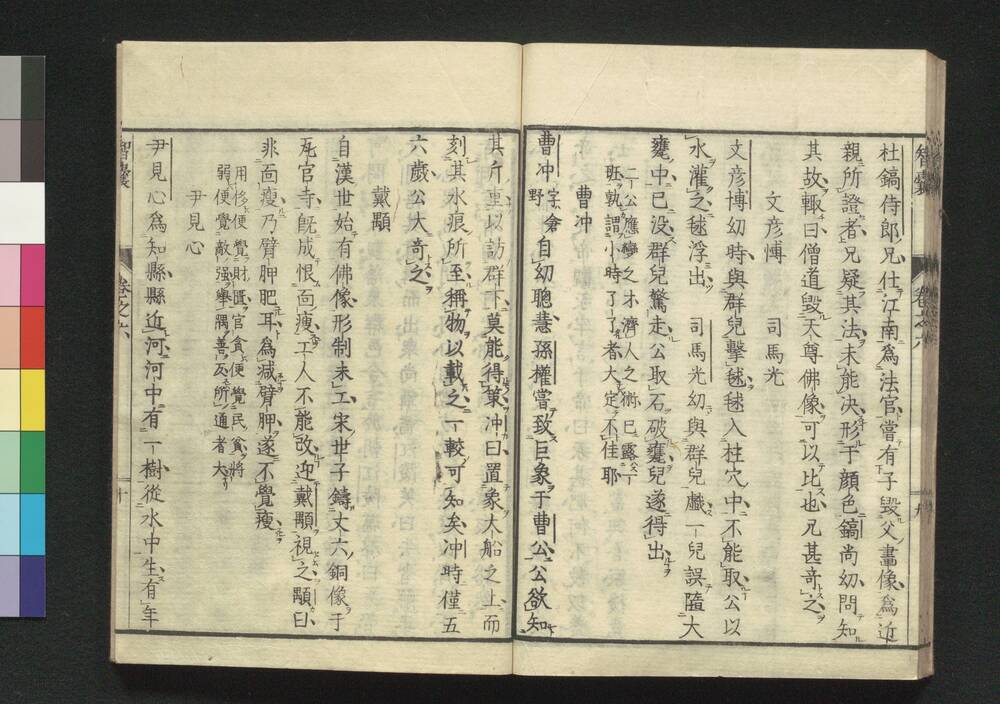 杜鎬侍郎兄仕江南為法官嘗有子毀父畫像為近
親所證者兄疑其法未能決形于顔色鎬尚幼問知
其故輙曰僧道毀天尊佛像可以比也兄甚奇之
文彦博　司馬光
文彦博幼時與群兒擊毬毬入柱穴中不能取公以
水灌之毬浮出　司馬光幼與群兒戲一兒誤墮大
甕中已没群兒驚走公取石破甕兒遂得出
二公應變之才濟人之術已露一
班孰謂小時了了者大定不佳耶
曹冲
曹冲字倉野自幼聰慧孫權嘗致巨象于曹公公欲知
其斤重以訪群下莫能得策冲曰置象大船之上而
刻其水痕所至稱物以載之一較可知矣冲時僅五
六歳公大奇之
戴顒
自漢世始有佛像形制未工宋世子鑄丈六銅像于
瓦官寺既成恨面瘦工人不能改迎戴顒視之顒曰
非面瘦乃臂胛肥耳為减臂胛遂不覺瘦
用侈便覺財匱官貪便覺民貧將
弱便覺敵强舉隅善反所通者大
尹見心
尹見心為知縣縣近河河中有一樹從水中生有年
智囊　卷之六　十